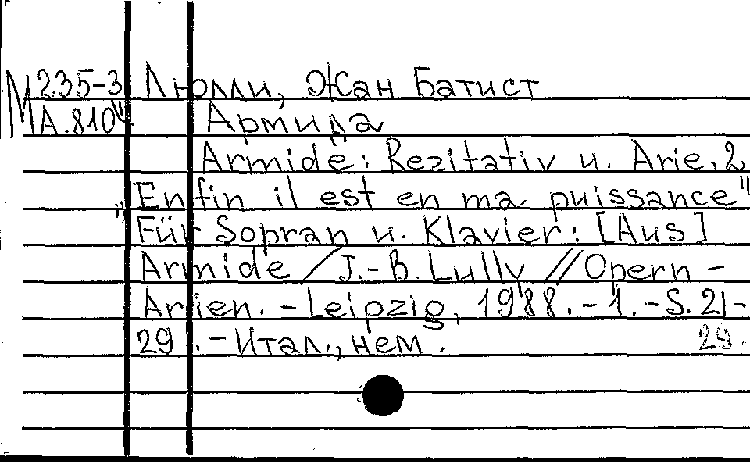 М 235-3 Люлли, Жан Батист
А.810 Армида
Armide: Rezitativ u. Arie. 2
"Enfin il est en ma puissance"
Für Sopran u. Klavier: [Aus]
Armide / J.-B. Lully // Opern-
Arien. - Leipzig, 1988. - 1. - S. 21-
29. - Итал., нем. 29.